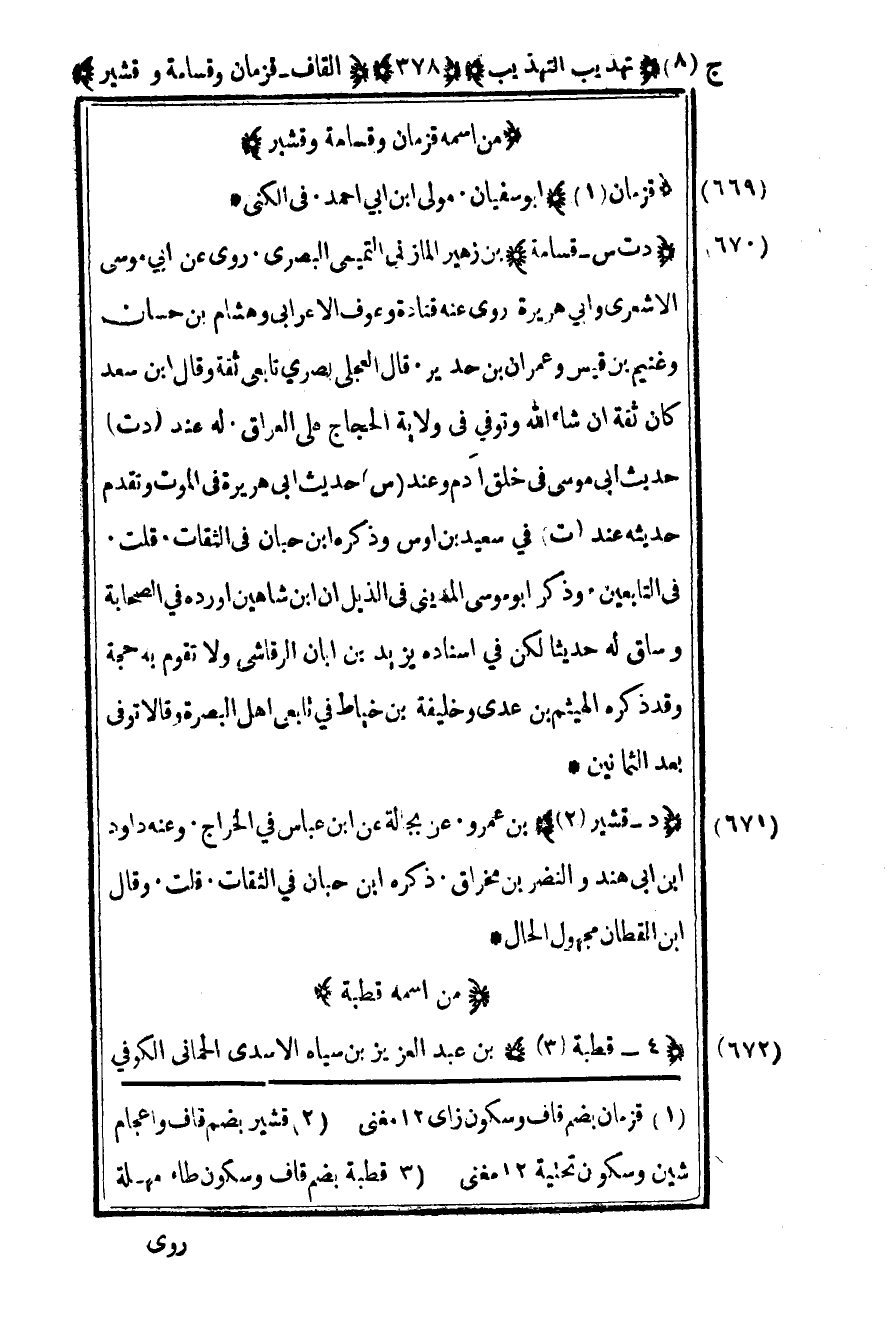 ج (٨) ﴿ تهذيب التهذيب ﴾ ﴿ ٣٧٨ ﴾ ﴿ القاف ـ قزمان وقسامة و قشير ﴾
﴿ من اسمه قزمان وقسامة وقشير ﴾
(٦٦٩) ﴿ قزمان (١) ﴾ ابوسفيان ٠ مولى ابن ابي احمد ٠ في الكنى *
(٦٧٠) ﴿ دت س ـ قسامة ﴾ بن زهير المازني التميمي البصرى ٠ روى عن ابي موسى
الاشعرى وابي هريرة روى عنه قتادة وعوف الاعرابي وهشام بن حسان
وغنيم بن قيس وعمران بن حدير ٠ قال العجلى بصري تابعى ثقة وقال ابن سعد
كان ثقة ان شاء الله وتوفي في ولاية الحجاج على العراق ٠ له عند (دت)
حديث ابي موسى في خلق آدم وعند (س) حديث ابي هريرة في الموت وتقدم
حديثه عند (ت) في سعيد بن اوس وذكره ابن حبان في الثقات ٠ قلت ٠
في التابعين ٠ وذكر ابوموسى المديني في الذيل ان ابن شاهين اورده في الصحابة
وساق له حديثا لكن في اسناده يزيد بن ابان الرقاشى ولا تقوم به حجة
وقد ذكره الهيثم بن عدى وخليفة بن خياط في تابعى اهل البصرة وقالا توفى
بعد الثمانين *
(٦٧١) ﴿ د ـ قشير (٢) ﴾ بن عمرو ٠ عن بجالة عن ابن عباس في الخراج ٠ وعنه داود
ابن ابي هند و النضر بن مخراق ٠ ذكره ابن حبان في الثقات ٠ قلت ٠ وقال
ابن القطان مجهول الحال *
﴿ من اسمه قطبة ﴾
(٦٧٢) ﴿ ٤ ـ قطبة (٣) ﴾ بن عبد العزيز بن سياه الاسدى الحمانى الكوفي
(١) قزمان بضم قاف وسكون زاى ١٢ مغنى (٢) قشير بضم قاف واعجام
شين وسكون تحتية ١٢ مغنى (٣ قطبة بضم قاف وسكون طاء مهملة
روى